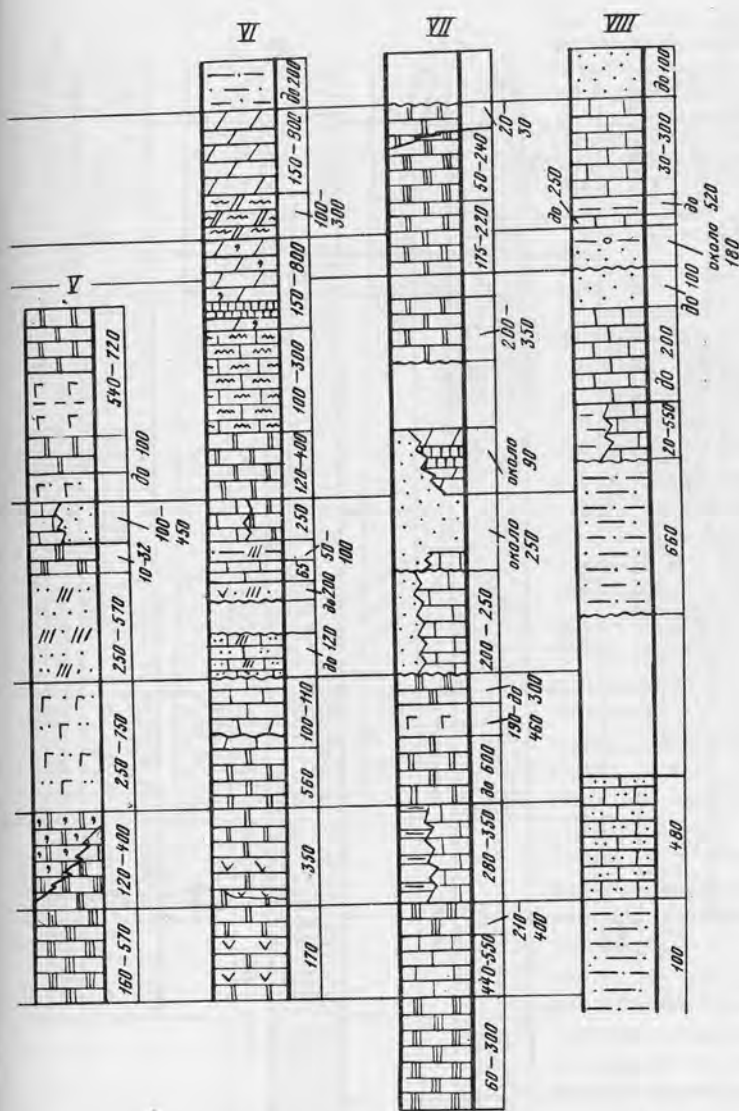 V
540–720
до 100
100–
450
10–32
250–570
250–750
120–400
160–570
VI
до 200
150–900
100–
300
150–800
100–300
120–400
250
50–
100
65
до 200
до 120
100–110
560
350
170
VII
20–
30
50–240
175–220
200–
350
около
90
около
250
200–250
300
190–до
460
до 600
280–350
210–
400
440–550
60–300
VIII
до 100
30–300
до 250
до
520
около
180
до 100
до 200
20–550
660
480
100